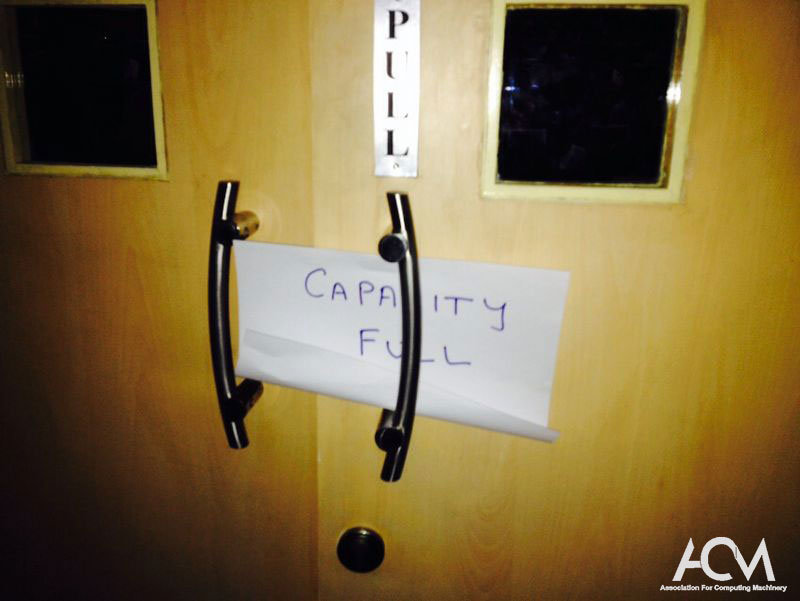 PULL
CAPACITY
FULL
ACM
Association For Computing Machinery